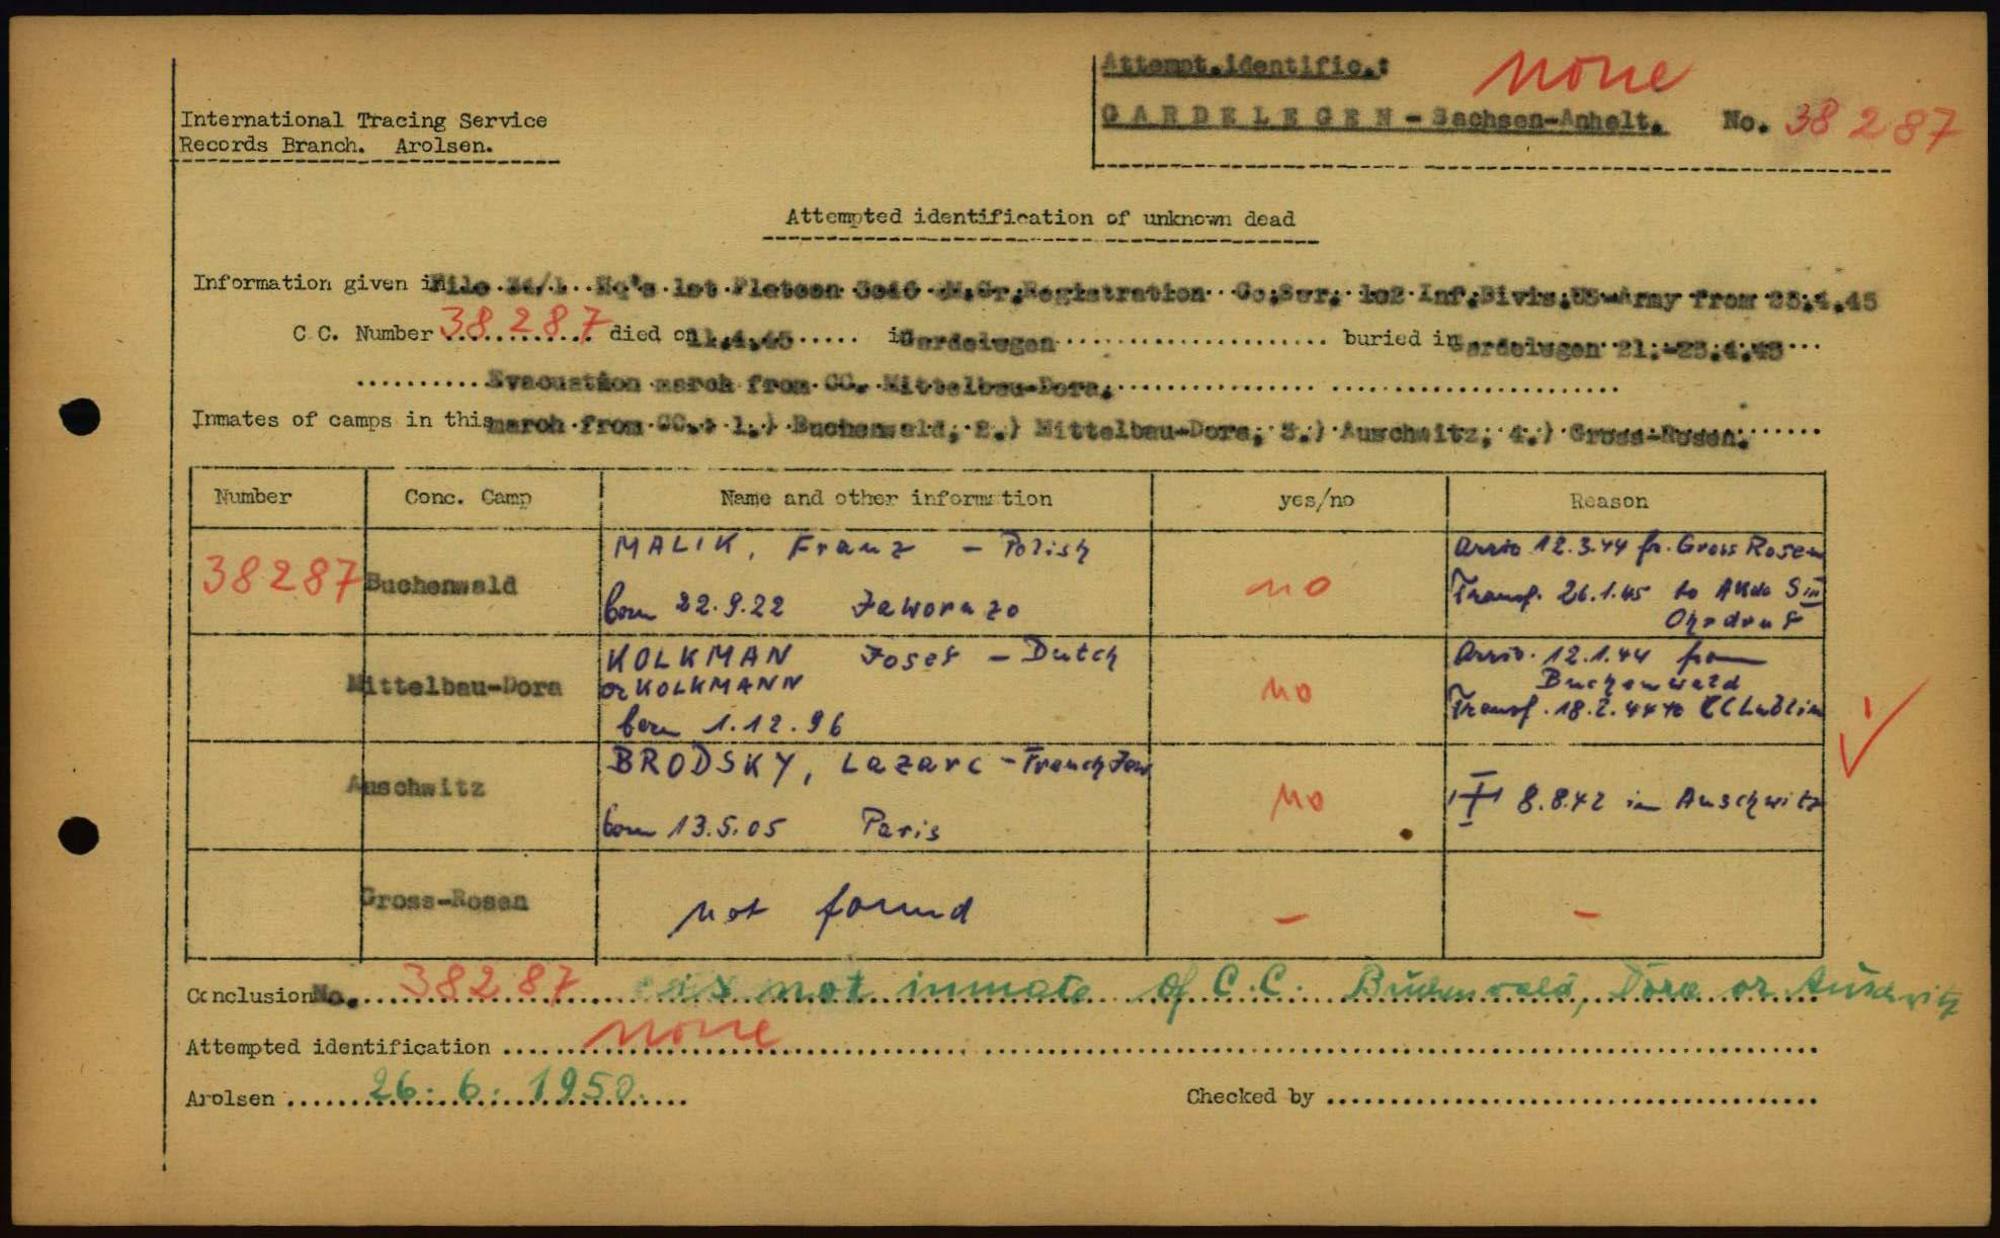 Attempt.identific.: none
GARDELEGEN - Sachsen-Anhalt. No. 38287
International Tracing Service
Records Branch. Arolsen.
Attempted identification of unknown dead
Information given in File Hq's 1st Platoon Gr.Registration Co.Ser. 102 Inf.Divis.US-Army from 25.4.45
C.C. Number 38287 died on 11.4.45 in Gardelegen buried in Gardelegen 21.-23.4.45
Evacuation march from CC. Mittelbau-Dora.
Inmates of camps in this march from CC.: 1.) Buchenwald, 2.) Mittelbau-Dora, 3.) Auschwitz, 4.) Gross-Rosen.
Number Conc. Camp Name and other information yes/no Reason
38287 Buchenwald MALIK, Franz - Polish no Arriv 12.3.44 fr. Gross Rosen
born 22.9.22 Jaworazo Transf. 26.1.45 to AKdo S III
Ohrdruf
Mittelbau-Dora KOLKMAN Josef - Dutch no Arriv. 12.1.44 from
or KOLKMANN Buchenwald
born 1.12.96 Transf. 18.2.44 to CC Lublin
Auschwitz BRODSKY, Lazarc - French Jew no 8.8.42 in Auschwitz
born 13.5.05 Paris
Gross-Rosen not found - -
Conclusion No. 38287 is not inmate of C.C. Buchenwald, Dora or Auschwitz
Attempted identification none
Arolsen 26.6.1950. Checked by